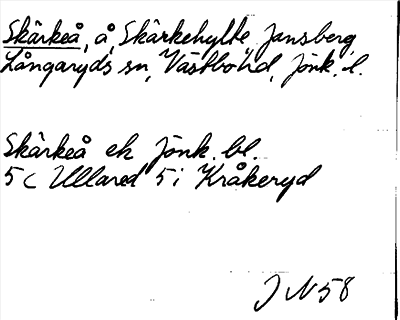 Skärkeå, å, Skärkehylte Jansberg,
Långaryds sn, Västbo hd, Jönk. l.
Skärkeå ek Jönk. bl.
5c Ullared 5i Kråkeryd
J N 58